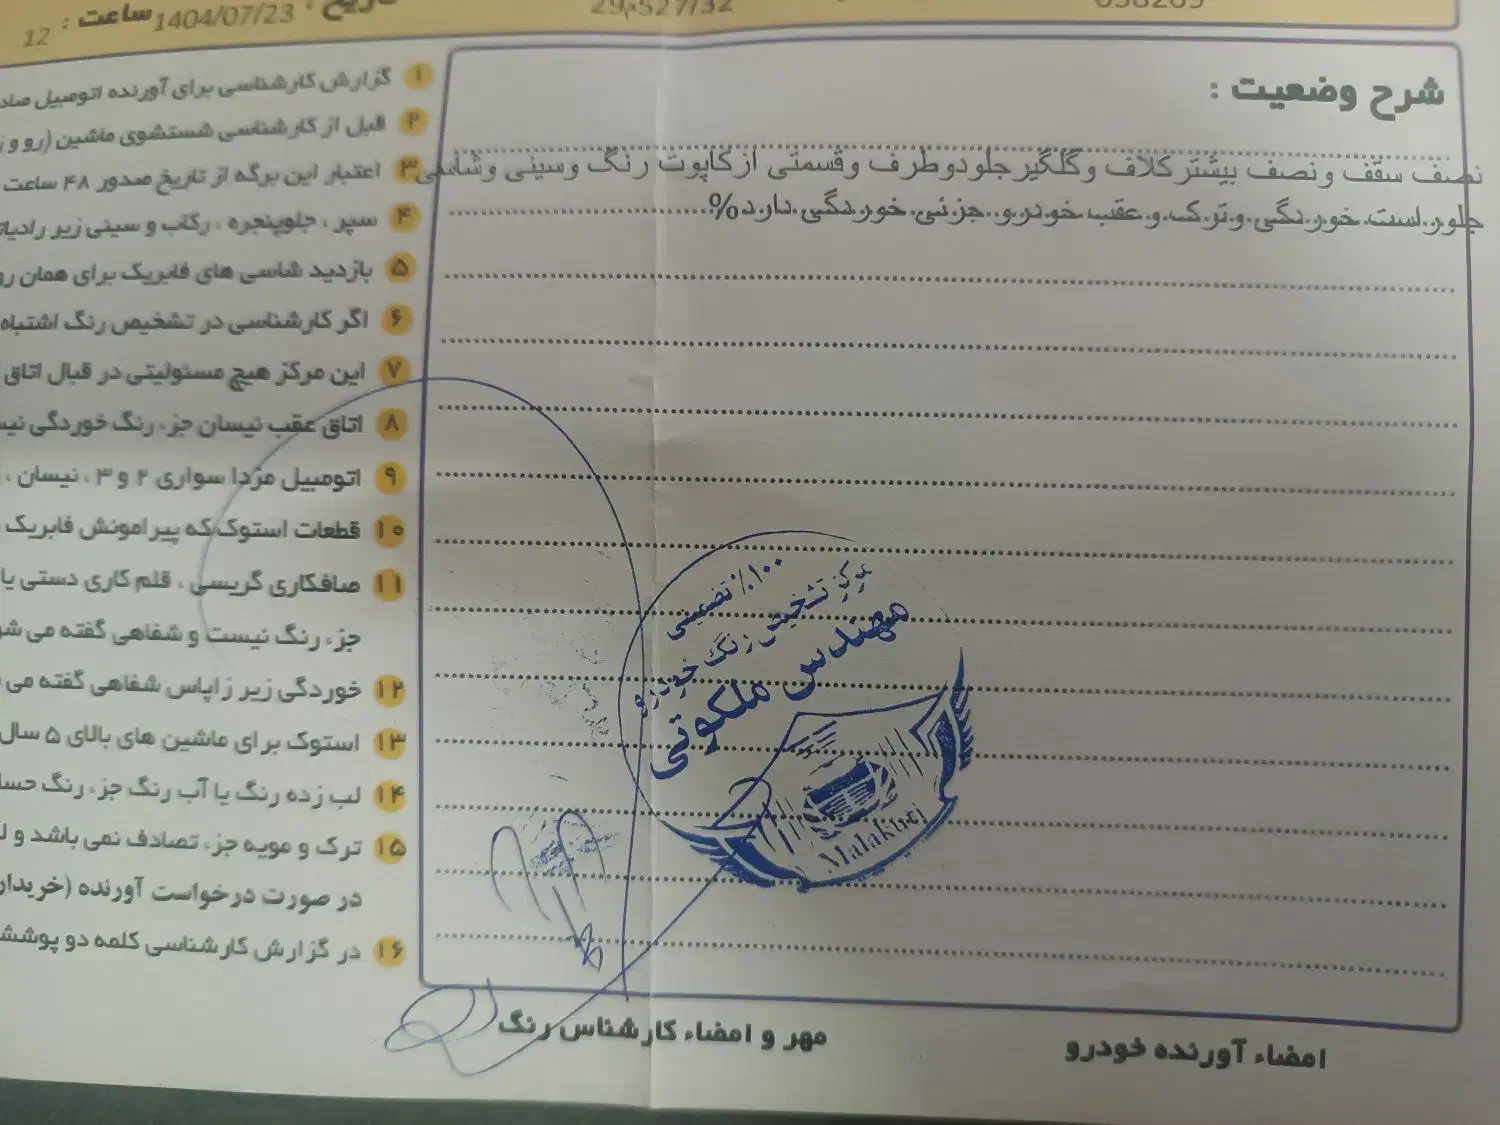 تاریخ : 1404/07/23 ساعت : 12
شرح وضعیت :
نصف سقف ونصف بیشترکلاف وگلگیرجلودوطرف وقسمتی ازکاپوت رنگ وسینی وشاسی
جلور.است.خوردگی.وترک.و.عقب.خودرو.جزئی.خوردگی.دارد%
۱ گزارش کارشناسی برای آورنده اتومبیل
۲ قبل از کارشناسی شستشوی ماشین (رو و
۳ اعتبار این برگه از تاریخ صدور ۴۸ ساعت
۴ سپر ، جلوپنجره ، رکاب و سینی زیر
۵ بازدید شاسی های فابریک برای همان
۶ اگر کارشناسی در تشخیص رنگ اشتباه
۷ این مرکز هیچ مسئولیتی در قبال اتاق
۸ اتاق عقب نیسان جزء رنگ خوردگی
۹ اتومبیل مزدا سواری ۲ و ۳ ، نیسان ،
۱۰ قطعات استوک که پیرامونش فابریک
۱۱ صافکاری گریسی ، قلم کاری دستی یا
جزء رنگ نیست و شفاهی گفته می
۱۲ خوردگی زیر زاپاس شفاهی گفته می
۱۳ استوک برای ماشین های بالای ۵ سال
۱۴ لب زده رنگ یا آب رنگ جزء رنگ
۱۵ ترک و مویه جزء تصادف نمی باشد و
در صورت درخواست آورنده (خریدار
۱۶ در گزارش کارشناسی کلمه دو
۱۰۰٪ تضمینی
مرکز تشخیص رنگ خودرو
مهندس ملکوتی
Malakuti
مهر و امضاء کارشناس رنگ
امضاء آورنده خودرو